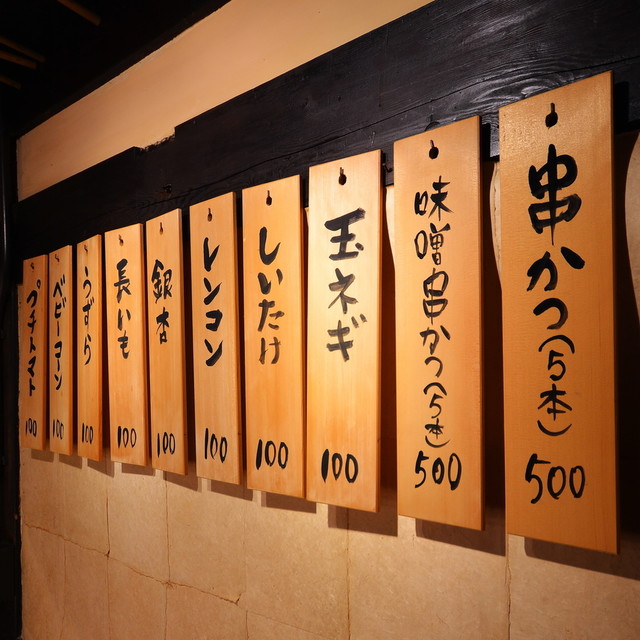 串かつ(5本)
500
味噌串かつ(5本)
500
玉ネギ
100
しいたけ
100
レンコン
100
銀杏
100
長いも
100
うずら
100
ベビーコーン
100
プチトマト
100